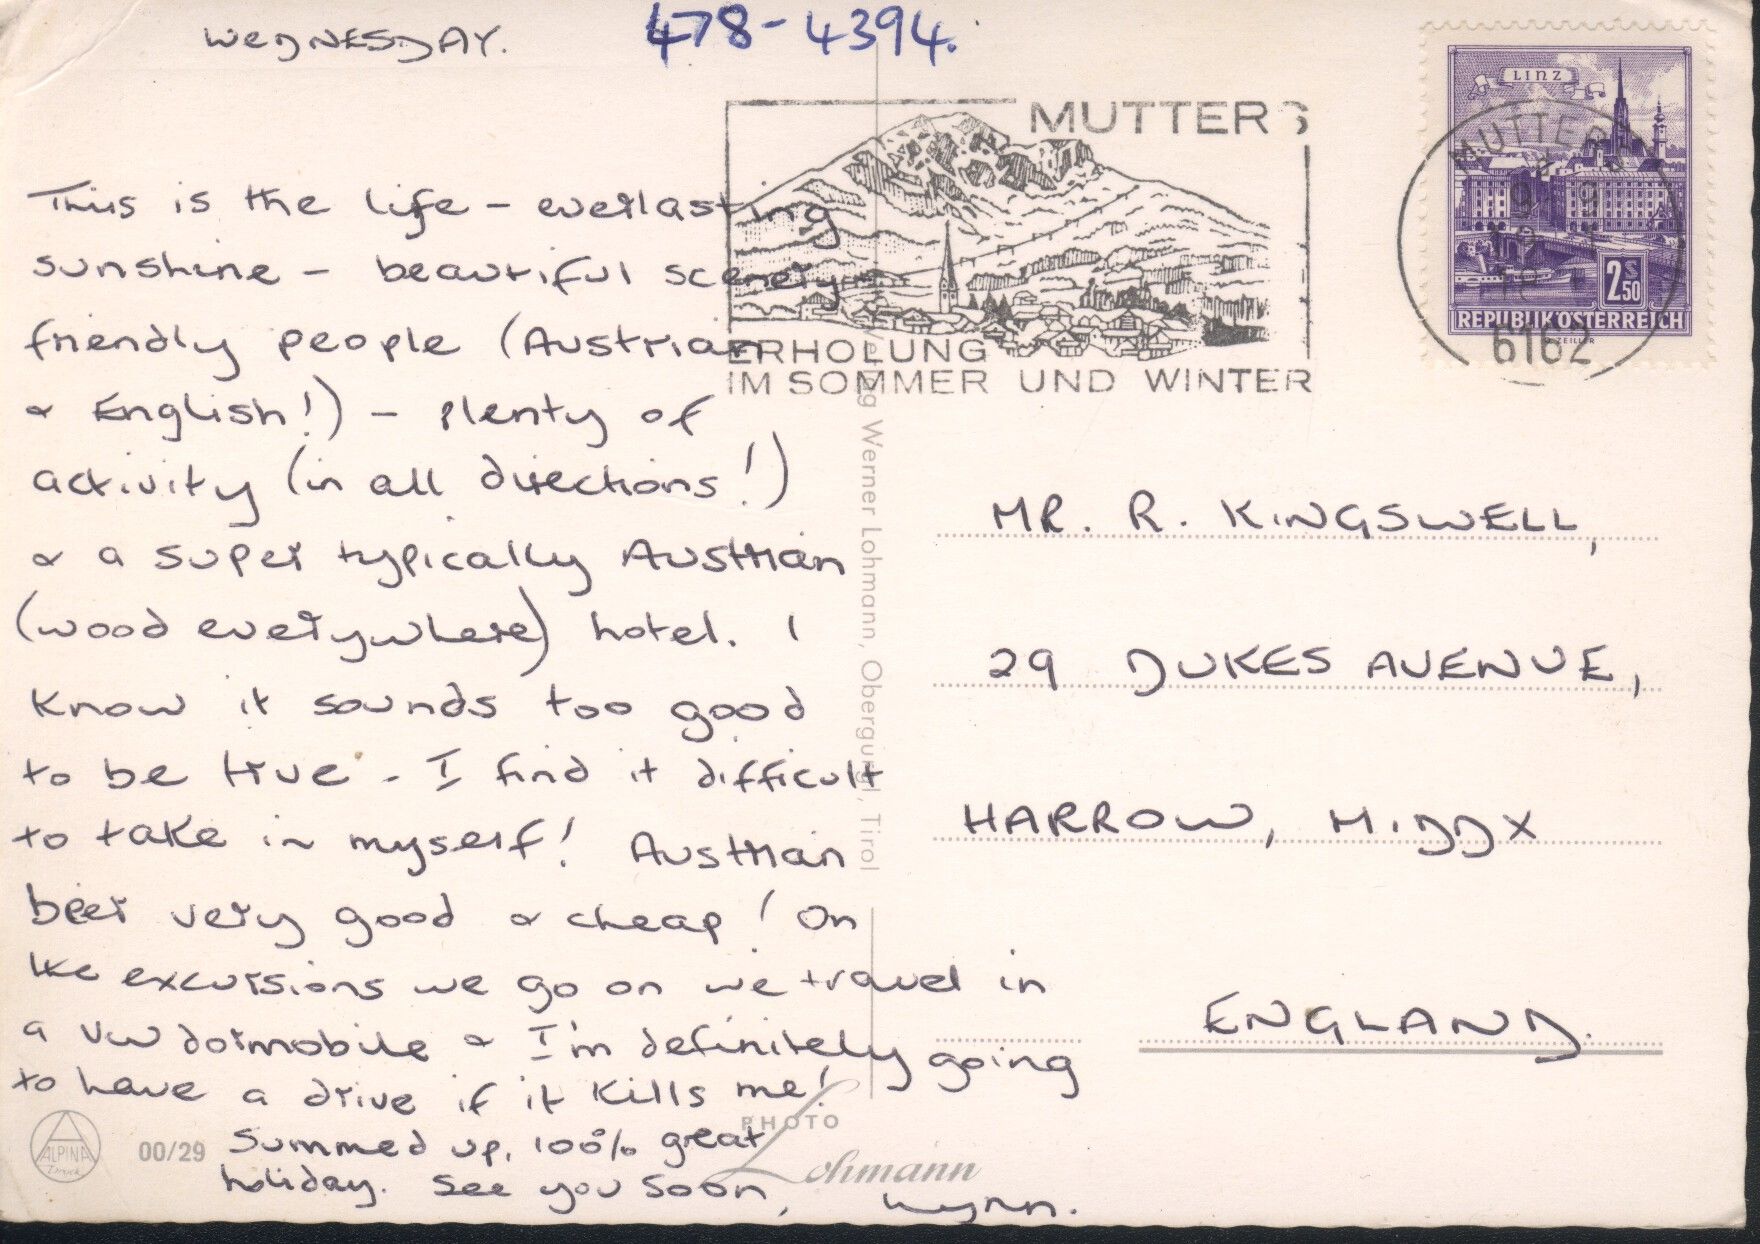 WEDNESDAY.
478-4394.
This is the life - everlasting
sunshine - beautiful scenery
friendly people (Austrian
& English!) - plenty of
activity (in all directions!)
& a super typically Austrian
(wood everywhere) hotel. I
know it sounds too good
to be true - I find it difficult
to take in myself! Austrian
beer very good & cheap! On
the excursions we go on we travel in
a VW dormobile & I'm definitely going
to have a drive if it kills me!
Summed up, 100% great
holiday. See you soon,
Wynn.
MUTTERS
ERHOLUNG
IM SOMMER UND WINTER
LINZ
2S50
REPUBLIK ÖSTERREICH
ZEILLER
MUTTERS
6162
MR. R. KINGSWELL,
29 DUKES AVENUE,
HARROW, MIDDX
ENGLAND.
Verlag Werner Lohmann, Obergurgl, Tirol
ALPINA
Druck
00/29
PHOTO
Lohmann